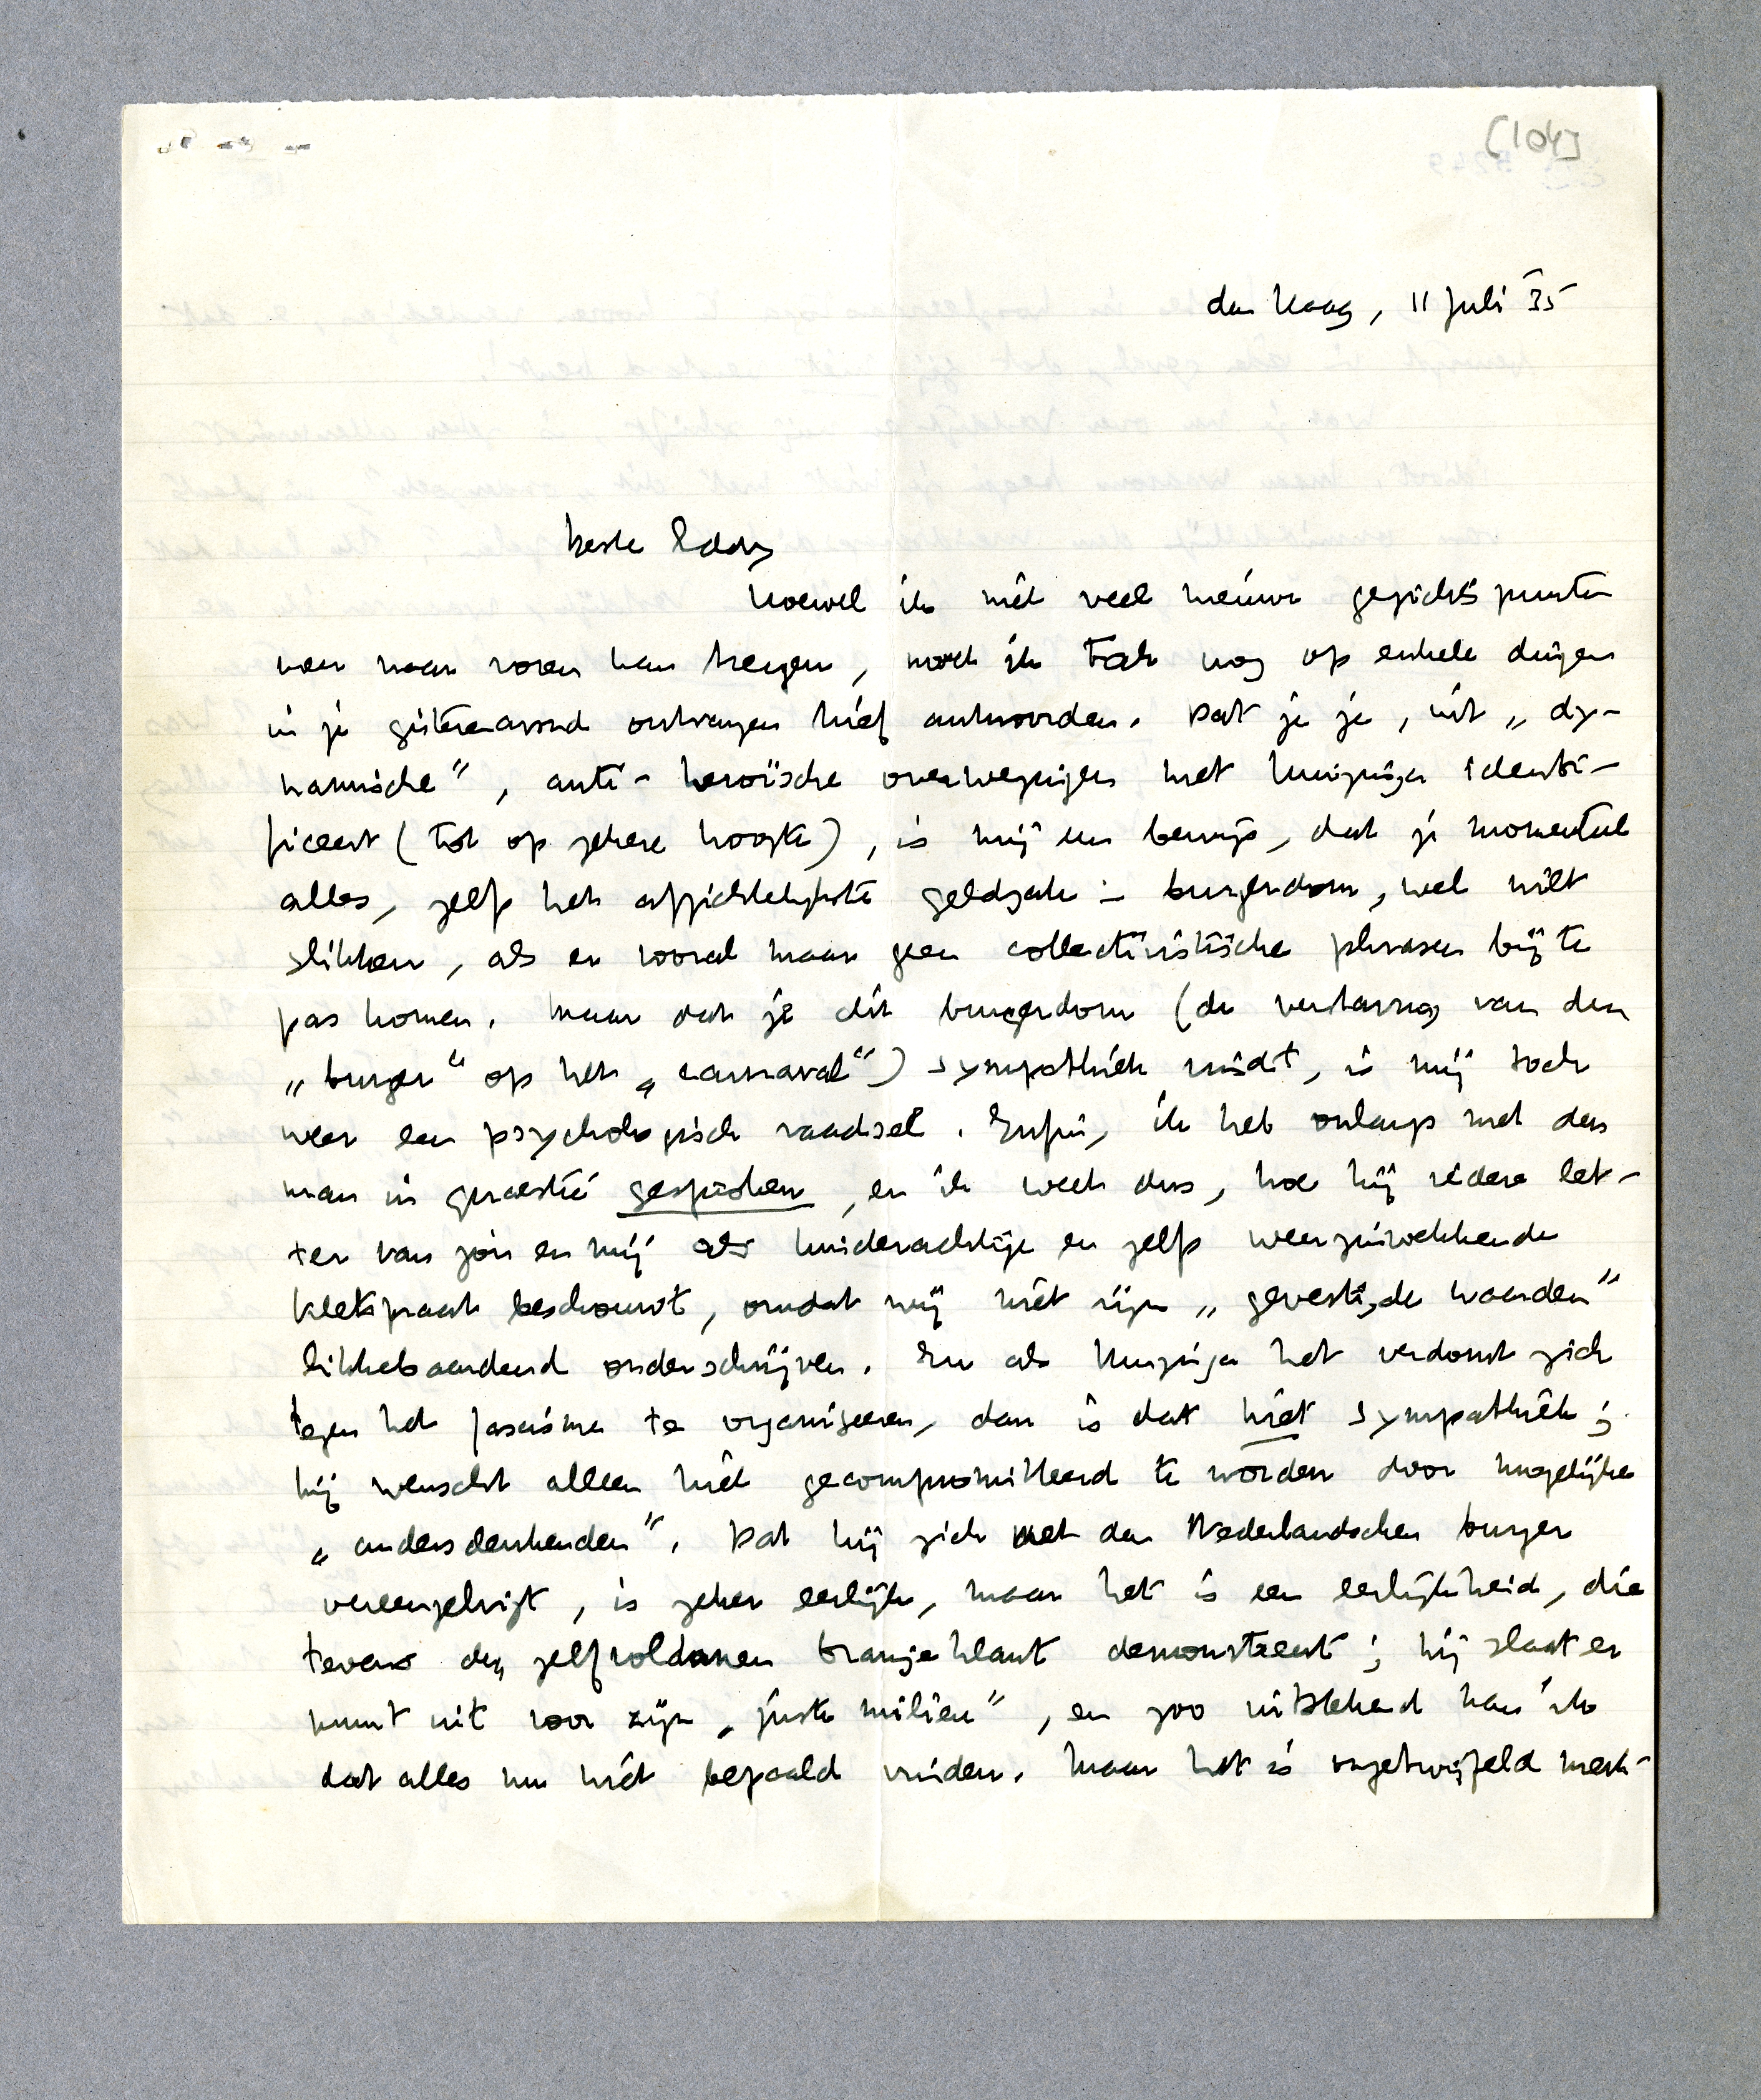 [104]
den Haag, 11 Juli 35
beste Eddy
Hoewel ik niet veel nieuwe gezichtspunten
meer naar voren kan brengen, moet ik toch nog op enkele dingen
in je gisterenavond ontvangen brief antwoorden. Dat je je, uit „dy-
namische”, anti-heroïsche overwegingen met Huizinga identi-
ficeert (tot op zekere hoogte), is mij een bewijs, dat je momenteel
alles, zelfs het afzichtelijkste geldzak-burgerdom, wel wilt
slikken, als er vooral maar geen collectivistische phrasen bij te
pas komen. Maar dat je dit burgerdom (de verstarring van den
„burger” op het „carnaval”) sympathiek vindt, is mij toch
weer een psychologisch raadsel. Enfin, ik heb onlangs met den
man in quaestie gesproken, en ik weet dus, hoe hij iedere let-
ter van jou en mij als kinderachtige en zelfs weerzinwekkende
kletspraat beschouwt, omdat wij niet zijn „gevestigde waarden”
likkebaardend onderschrijven. En als Huizinga het verdomt zich
tegen het fascisme te organiseeren, dan is dat niet sympathiek;
hij wenscht alleen niet gecompromitteerd te worden door mogelijke
„andersdenkenden”. Dat hij zich met den Nederlandschen burger
vereenzelvigt, is zeker eerlijk, maar het is een eerlijkheid, die
tevens den zelfvoldanen Oranjeklant demonstreert; hij slaat er
munt uit voor zijn „juste milieu”, en zoo uitstekend kan ik
dat alles nu niet bepaald vinden. Maar het is ongetwijfeld merk-